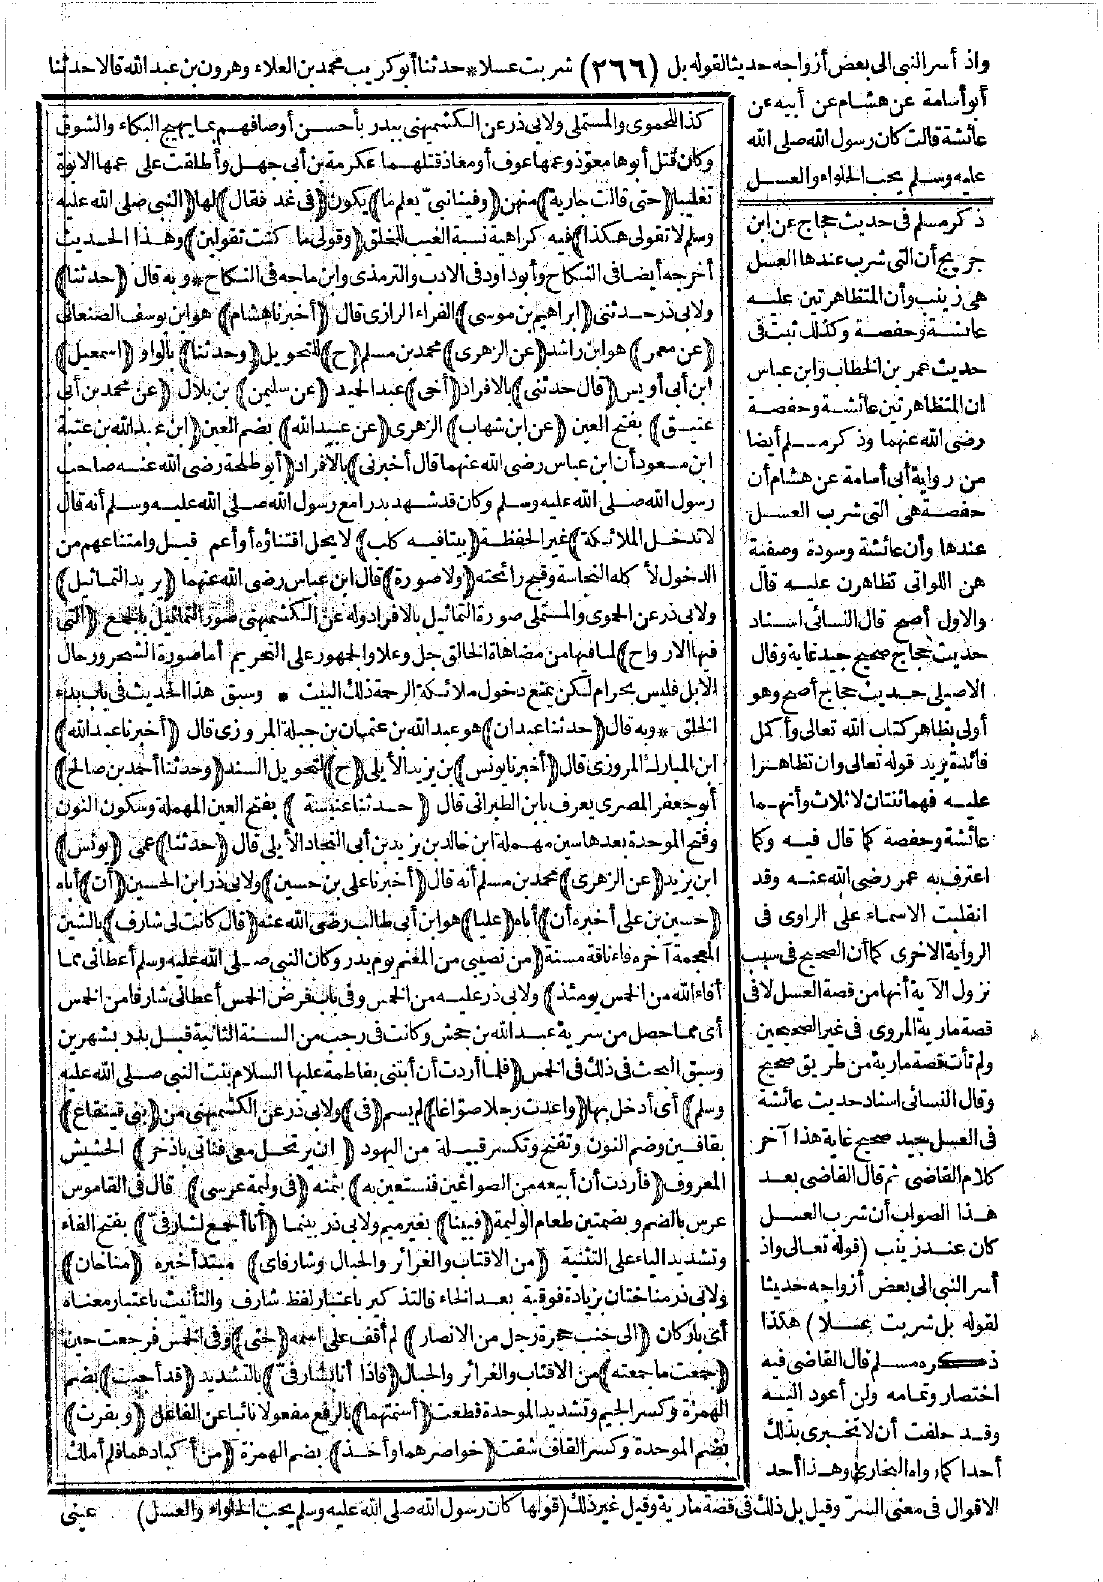 واذ أسر النبى الى بعض أزواجه حديثا لقوله بل (٢٦٦) شربت عسلا * حدثنا أبو كريب محمد بن العلاء وهرون بن عبد الله قالا حدثنا
أبو أسامة عن هشام عن أبيه عن
عائشة قالت كان رسول الله صلى الله
عليه وسلم يحب الحلواء والعسل
ذكر مسلم فى حديث حجاج عن ابن
جريج أن التى شرب عندها العسل
هى زينب وأن المتظاهرتين عليه
عائشة وحفصة وكذلك ثبت فى
حديث عمر بن الخطاب وابن عباس
ان المتظاهرتين عائشة وحفصة
رضى الله عنهما وذكر مسلم أيضا
من رواية أبى أسامة عن هشام أن
حفصة هى التى شرب العسل
عندها وأن عائشة وسودة وصفية
هن اللواتى تظاهرن عليه قال
والاول أصح قال النسائى اسناد
حديث حجاج صحيح جيد غاية وقال
الاصيلى حديث حجاج أصح وهو
أولى بظاهر كتاب الله تعالى وأكمل
فائدة يريد قوله تعالى وان تظاهرا
عليه فهما ثنتان لا ثلاث وأنهما
عائشة وحفصة كما قال فيه وكما
اعترف به عمر رضى الله عنه وقد
انقلبت الاسماء على الراوى فى
الرواية الاخرى كما أن الصحيح فى سبب
نزول الآية أنها من قصة العسل لا فى
قصة مارية المروى فى غير الصحيحين
ولم تأت قصة مارية من طريق صحيح
وقال النسائى اسناد حديث عائشة
فى العسل جيد صحيح غاية هذا آخر
كلام القاضى ثم قال القاضى بعد
هذا الصواب أن شرب العسل
كان عند زينب (قوله تعالى واذ
أسر النبى الى بعض أزواجه حديثا
لقوله بل شربت عسلا) هكذا
ذكره مسلم قال القاضى فيه
اختصار وتمامه ولن أعود اليه
وقد حلفت أن لا تخبرى بذلك
أحدا كما رواه البخارى وهذا أحد
الاقوال فى معنى السر وقيل بل ذلك فى قصة مارية وقيل غير ذلك (قولها كان رسول الله صلى الله عليه وسلم يحب الحلواء والعسل)
كذا للحموى والمستملى ولابى ذر عن الكشميهنى ببدر بأحسن أوصافهم بما يهيج البكاء والشوق
وكان قتل أبوها معوذ وعمها عوف أو معاذ قتلهما عكرمة بن أبى جهل وأطلقت على عمها الابوة
تغليبا (حتى قالت جارية) منهن (وفينا نبى يعلم ما) يكون (فى غد فقال) لها (النبى صلى الله عليه
وسلم لا تقولى هكذا) فيه كراهية نسبة الغيب للخلق (وقولى ما كنت تقولين) وهذا الحديث
أخرجه أيضا فى النكاح وأبو داود فى الادب والترمذى وابن ماجه فى النكاح * وبه قال (حدثنا)
ولابى ذر حدثنى (ابراهيم بن موسى) الفراء الرازى قال (أخبرنا هشام) هو ابن يوسف الصنعانى
(عن معمر) هو ابن راشد (عن الزهرى) محمد بن مسلم (ح) للتحويل (وحدثنا) بالواو (اسمعيل)
ابن أبى أويس (قال حدثنى) بالافراد (أخى) عبد الحميد (عن سليمن) بن بلال (عن محمد بن أبى
عتيق) بفتح العين (عن ابن شهاب) الزهرى (عن عبيد الله) بضم العين (ابن عبد الله بن عتبة
ابن مسعود أن ابن عباس رضى الله عنهما قال أخبرنى) بالافراد (أبو طلحة رضى الله عنه صاحب
رسول الله صلى الله عليه وسلم وكان قد شهد بدرا مع رسول الله صلى الله عليه وسلم أنه قال
لا تدخل الملائكة) غير الحفظة (بيتا فيه كلب) لا يحل اقتناؤه أو أعم قيل وامتناعهم من
الدخول لأكله النجاسة وقبح رائحته (ولا صورة) قال ابن عباس رضى الله عنهما (يريد التماثيل)
ولابى ذر عن الحموى والمستملى صورة التماثيل بالافراد وله عن الكشميهنى صور التماثيل بالجمع (التى
فيها الارواح) لما فيها من مضاهاة الخالق جل وعلا والجمهور على التحريم أما صورة الشجر ورحال
الابل فليس بحرام لكن يمنع دخول ملائكة الرحمة ذلك البيت * وسبق هذا الحديث فى باب بدء
الخلق * وبه قال (حدثنا عبدان) هو عبد الله بن عثمان بن جبلة المروزى قال (أخبرنا عبد الله)
ابن المبارك المروزى قال (أخبرنا يونس) بن يزيد الأيلى (ح) لتحويل السند (وحدثنا أحمد بن صالح)
أبو جعفر المصرى يعرف بابن الطبرانى قال (حدثنا عنبسة) بفتح العين المهملة وسكون النون
وفتح الموحدة بعدها سين مهملة ابن خالد بن يزيد بن أبى النجاد الأيلى قال (حدثنا) عمى (يونس)
ابن يزيد (عن الزهرى) محمد بن مسلم أنه قال (أخبرنا على بن حسين) ولابى ذر ابن الحسين (أن) أباه
(حسين بن على أخبره أن) أباه (عليا) هو ابن أبى طالب رضى الله عنه (قال كانت لى شارف) بالشين
المعجمة آخره فاء ناقة مسنة (من نصيبى من المغنم يوم بدر وكان النبى صلى الله عليه وسلم أعطانى مما
أفاء الله من الخمس يومئذ) ولابى ذر عليه من الخمس وفى باب فرض الخمس أعطانى شارفا من الخمس
أى مما حصل من سرية عبد الله بن جحش وكانت فى رجب من السنة الثانية قبل بدر بشهرين
وسبق البحث فى ذلك فى الخمس (فلما أردت أن أبتنى بفاطمة عليها السلام بنت النبى صلى الله عليه
وسلم) أى أدخل بها (واعدت رجلا صواغا) لم يسم (فى) ولابى ذر عن الكشميهنى من (بنى قينقاع)
بقافين وضم النون وتفتح وتكسر قبيلة من اليهود (ان يرتحل معى فنأتى باذخر) الحشيش
المعروف (فأردت أن أبيعه من الصواغين فنستعين به) بثمنه (فى وليمة عرسى) قال فى القاموس
عرس بالضم وبضمتين طعام الوليمة (فبينا) بغير ميم ولابى ذر بينما (أنا أجمع لشارفى) بفتح الفاء
وتشديد الياء على التثنية (من الاقتاب والغرائر والحبال وشارفاى) مبتدأ خبره (مناخان)
ولابى ذر مناختان بزيادة فوقية بعد الخاء فالتذكير باعتبار لفظ شارف والتأنيث باعتبار معناه
أى باركان (الى جنب حجرة رجل من الانصار) لم أقف على اسمه (حتى) وفى الخمس فرجعت حين
(جمعت ما جمعته) من الاقتاب والغرائر والحبال (فاذا أنا بشارفى) بالتشديد (قد أجبت) بضم
الهمزة وكسر الجيم وتشديد الموحدة قطعت (أسنمتهما) بالرفع مفعولا نائبا عن الفاعل (وبقرت)
بضم الموحدة وكسر القاف شقت (خواصرهما وأخذ) بضم الهمزة (من أكبادهما فلم أملك
عينى